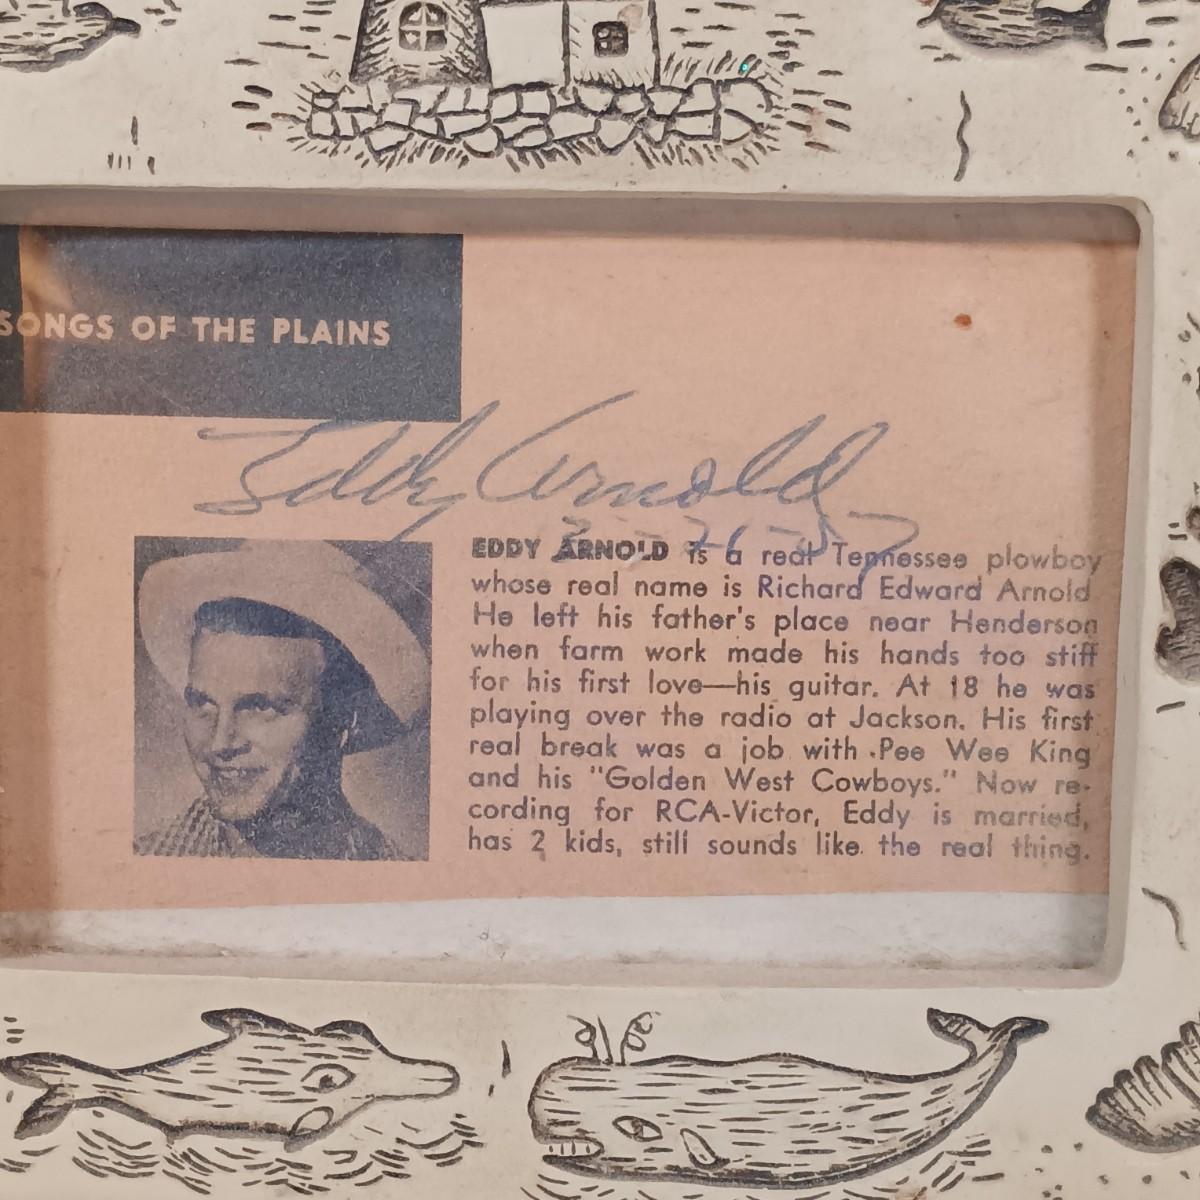 SONGS OF THE PLAINS
Eddy Arnold
EDDY ARNOLD is a real Tennessee plowboy
whose real name is Richard Edward Arnold
He left his father's place near Henderson
when farm work made his hands too stiff
for his first love—his guitar. At 18 he was
playing over the radio at Jackson. His first
real break was a job with Pee Wee King
and his "Golden West Cowboys." Now re-
cording for RCA-Victor, Eddy is married,
has 2 kids, still sounds like the real thing.